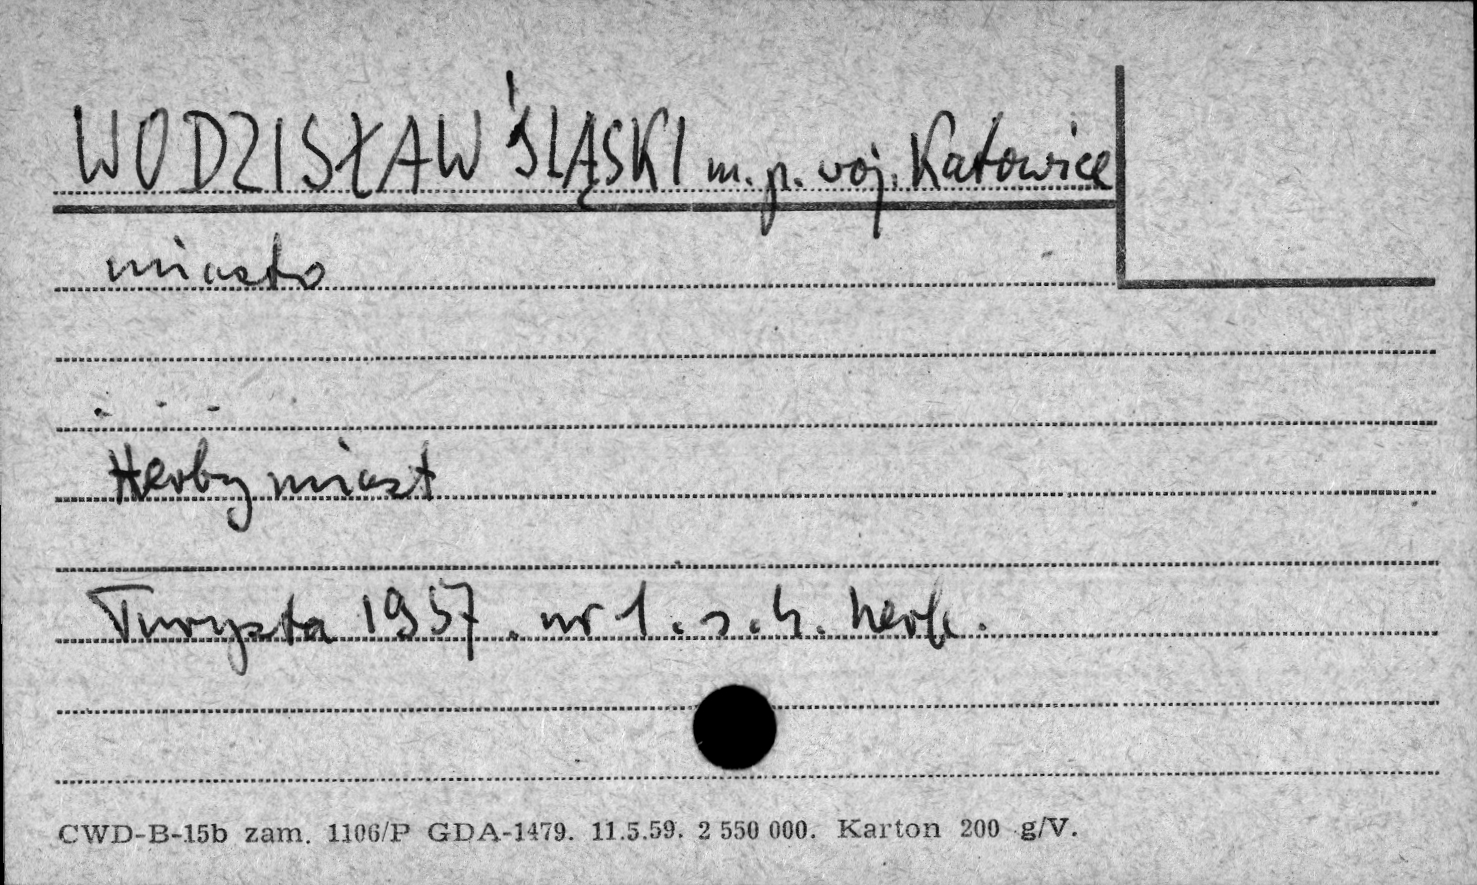 WODZISŁAW ŚLĄSKI m. p. woj. Katowice
miasto
Herby miast
Turysta 1957. nr 1. s. 4. herb.
CWD-B-15b zam. 1106/P GDA-1479. 11.5.59. 2 550 000. Karton 200 g/V.